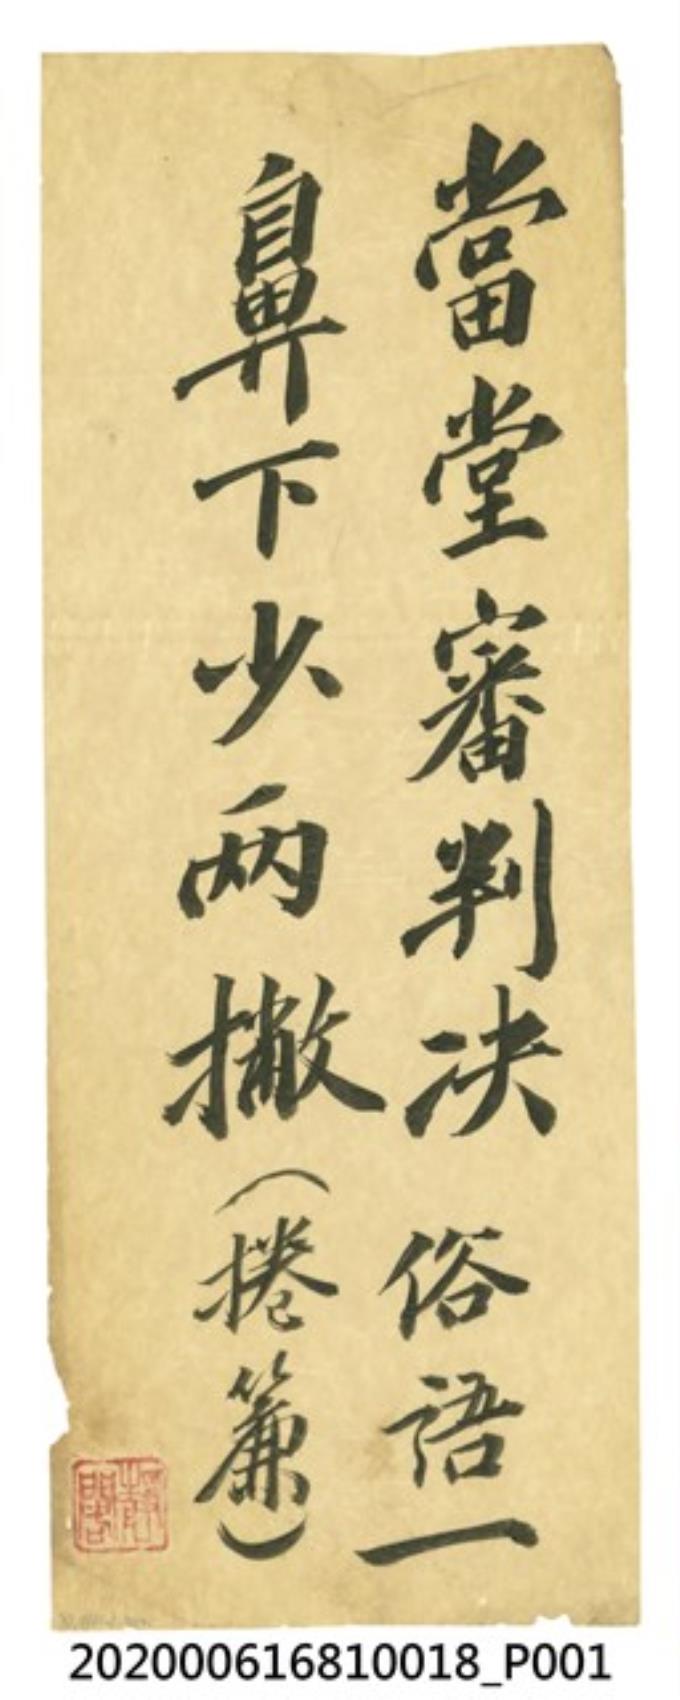 當堂審判决 俗語一
鼻下少两撇（捲簾）
202000616810018_P001